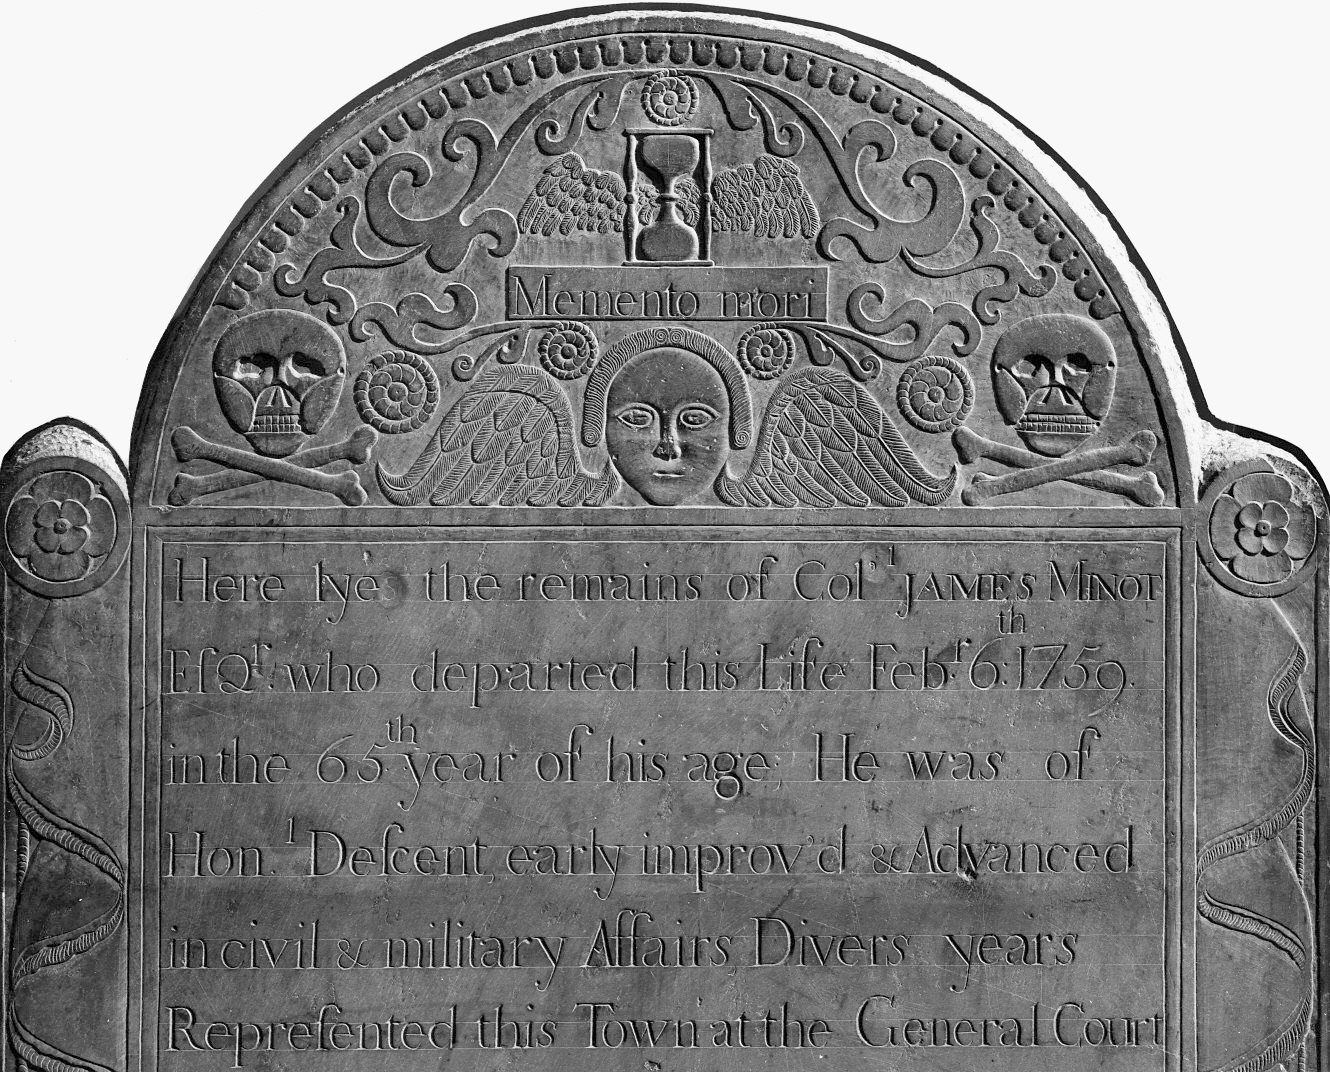 Memento mori
Here lyes the remains of Col.ˡ JAMES MINOT
EſQʳ. who departed this Life Febʳ. 6:ᵗʰ 1759.
in the 65ᵗʰ year of his age; He was of
Hon.ˡ Deſcent, early improv'd & Advanced
in civil & military Affairs, Divers years
Repreſented this Town at the General Court